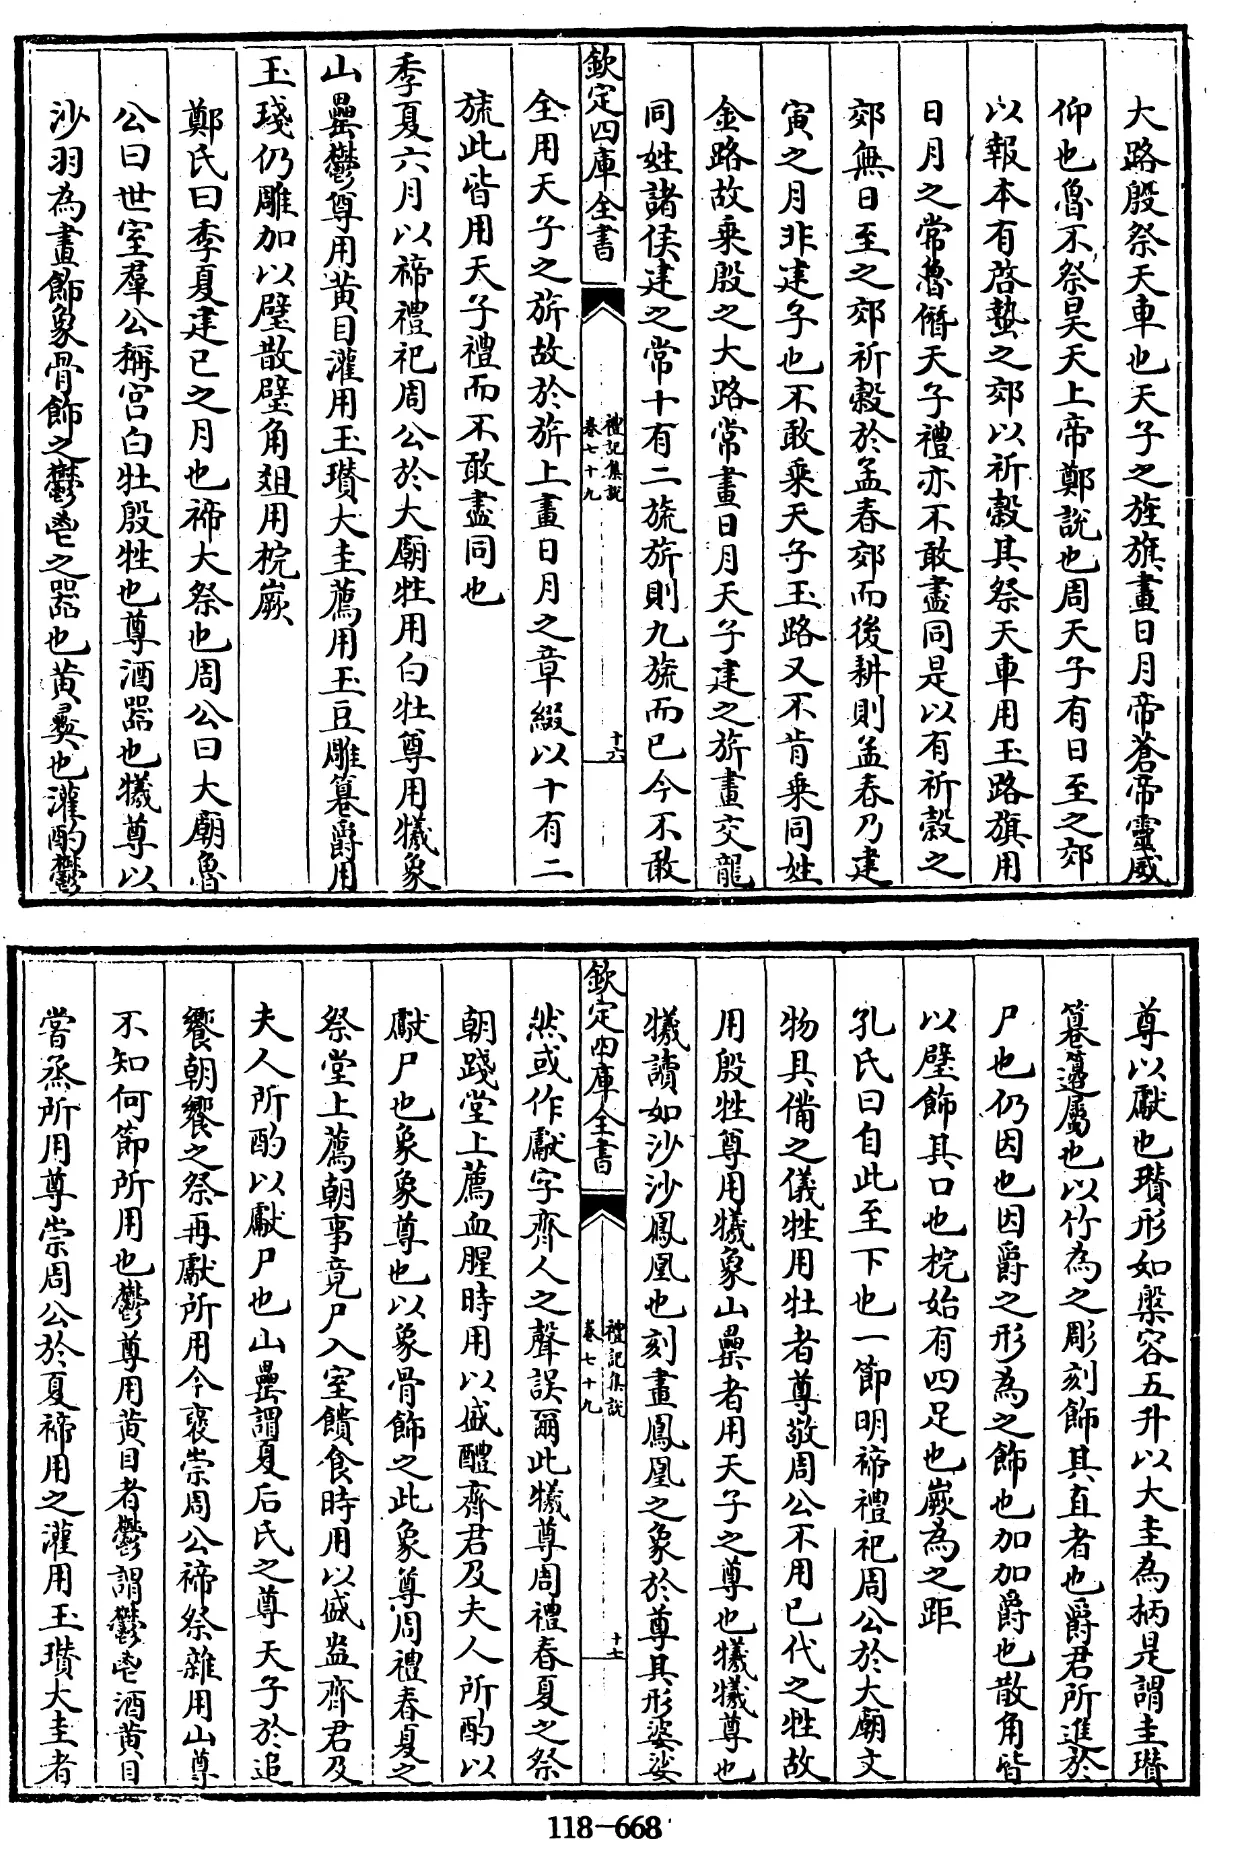 大路殷祭天車也天子之旌旗畫日月帝蒼帝靈威
仰也魯不祭昊天上帝鄭説也周天子有日至之郊
以報本有啓蟄之郊以祈穀其祭天車用玉路旗用
日月之常魯僭天子禮亦不敢盡同是以有祈穀之
郊無日至之郊祈穀於孟春郊而後耕則孟春乃建
寅之月非建子也不敢乘天子玉路又不肯乘同姓
金路故乘殷之大路常畫日月天子建之旂畫交龍
同姓諸侯建之常十有二旒旂則九旒而已今不敢
欽定四庫全書
禮記集説
卷七十九
十六
全用天子之旂故於旂上畫日月之章綴以十有二
旒此皆用天子禮而不敢盡同也
季夏六月以禘禮祀周公於大廟牲用白牡尊用犧象
山罍鬱尊用黄目灌用玉瓚大圭薦用玉豆雕篹爵用
玉琖仍雕加以璧散璧角俎用梡嶡
鄭氏曰季夏建巳之月也禘大祭也周公曰大廟魯
公曰世室羣公稱宫白牡殷牲也尊酒器也犧尊以
沙羽為畫飾象骨飾之鬱鬯之器也黄彞也灌酌鬱
尊以獻也瓚形如槃容五升以大圭為柄是謂圭瓚
篹籩屬也以竹為之彫刻飾其直者也爵君所進於
尸也仍因也因爵之形為之飾也加加爵也散角皆
以璧飾其口也梡始有四足也嶡為之距
孔氏曰自此至下也一節明禘禮祀周公於大廟文
物具備之儀牲用牡者尊敬周公不用已代之牲故
用殷牲尊用犧象山罍者用天子之尊也犧犧尊也
犧讀如沙沙鳳凰也刻畫鳳凰之象於尊其形婆娑
欽定四庫全書
禮記集説
卷七十九
十七
然或作獻字齊人之聲誤爾此犧尊周禮春夏之祭
朝踐堂上薦血腥時用以盛醴齊君及夫人所酌以
獻尸也象象尊也以象骨飾之此象尊周禮春夏之
祭堂上薦朝事竟尸入室饋食時用以盛盎齊君及
夫人所酌以獻尸也山罍謂夏后氏之尊天子於追
饗朝饗之祭再獻所用今襃崇周公禘祭雜用山尊
不知何節所用也鬱尊用黄目者鬱謂鬱鬯酒黄目
嘗烝所用尊崇周公於夏禘用之灌用玉瓚大圭者
118-668